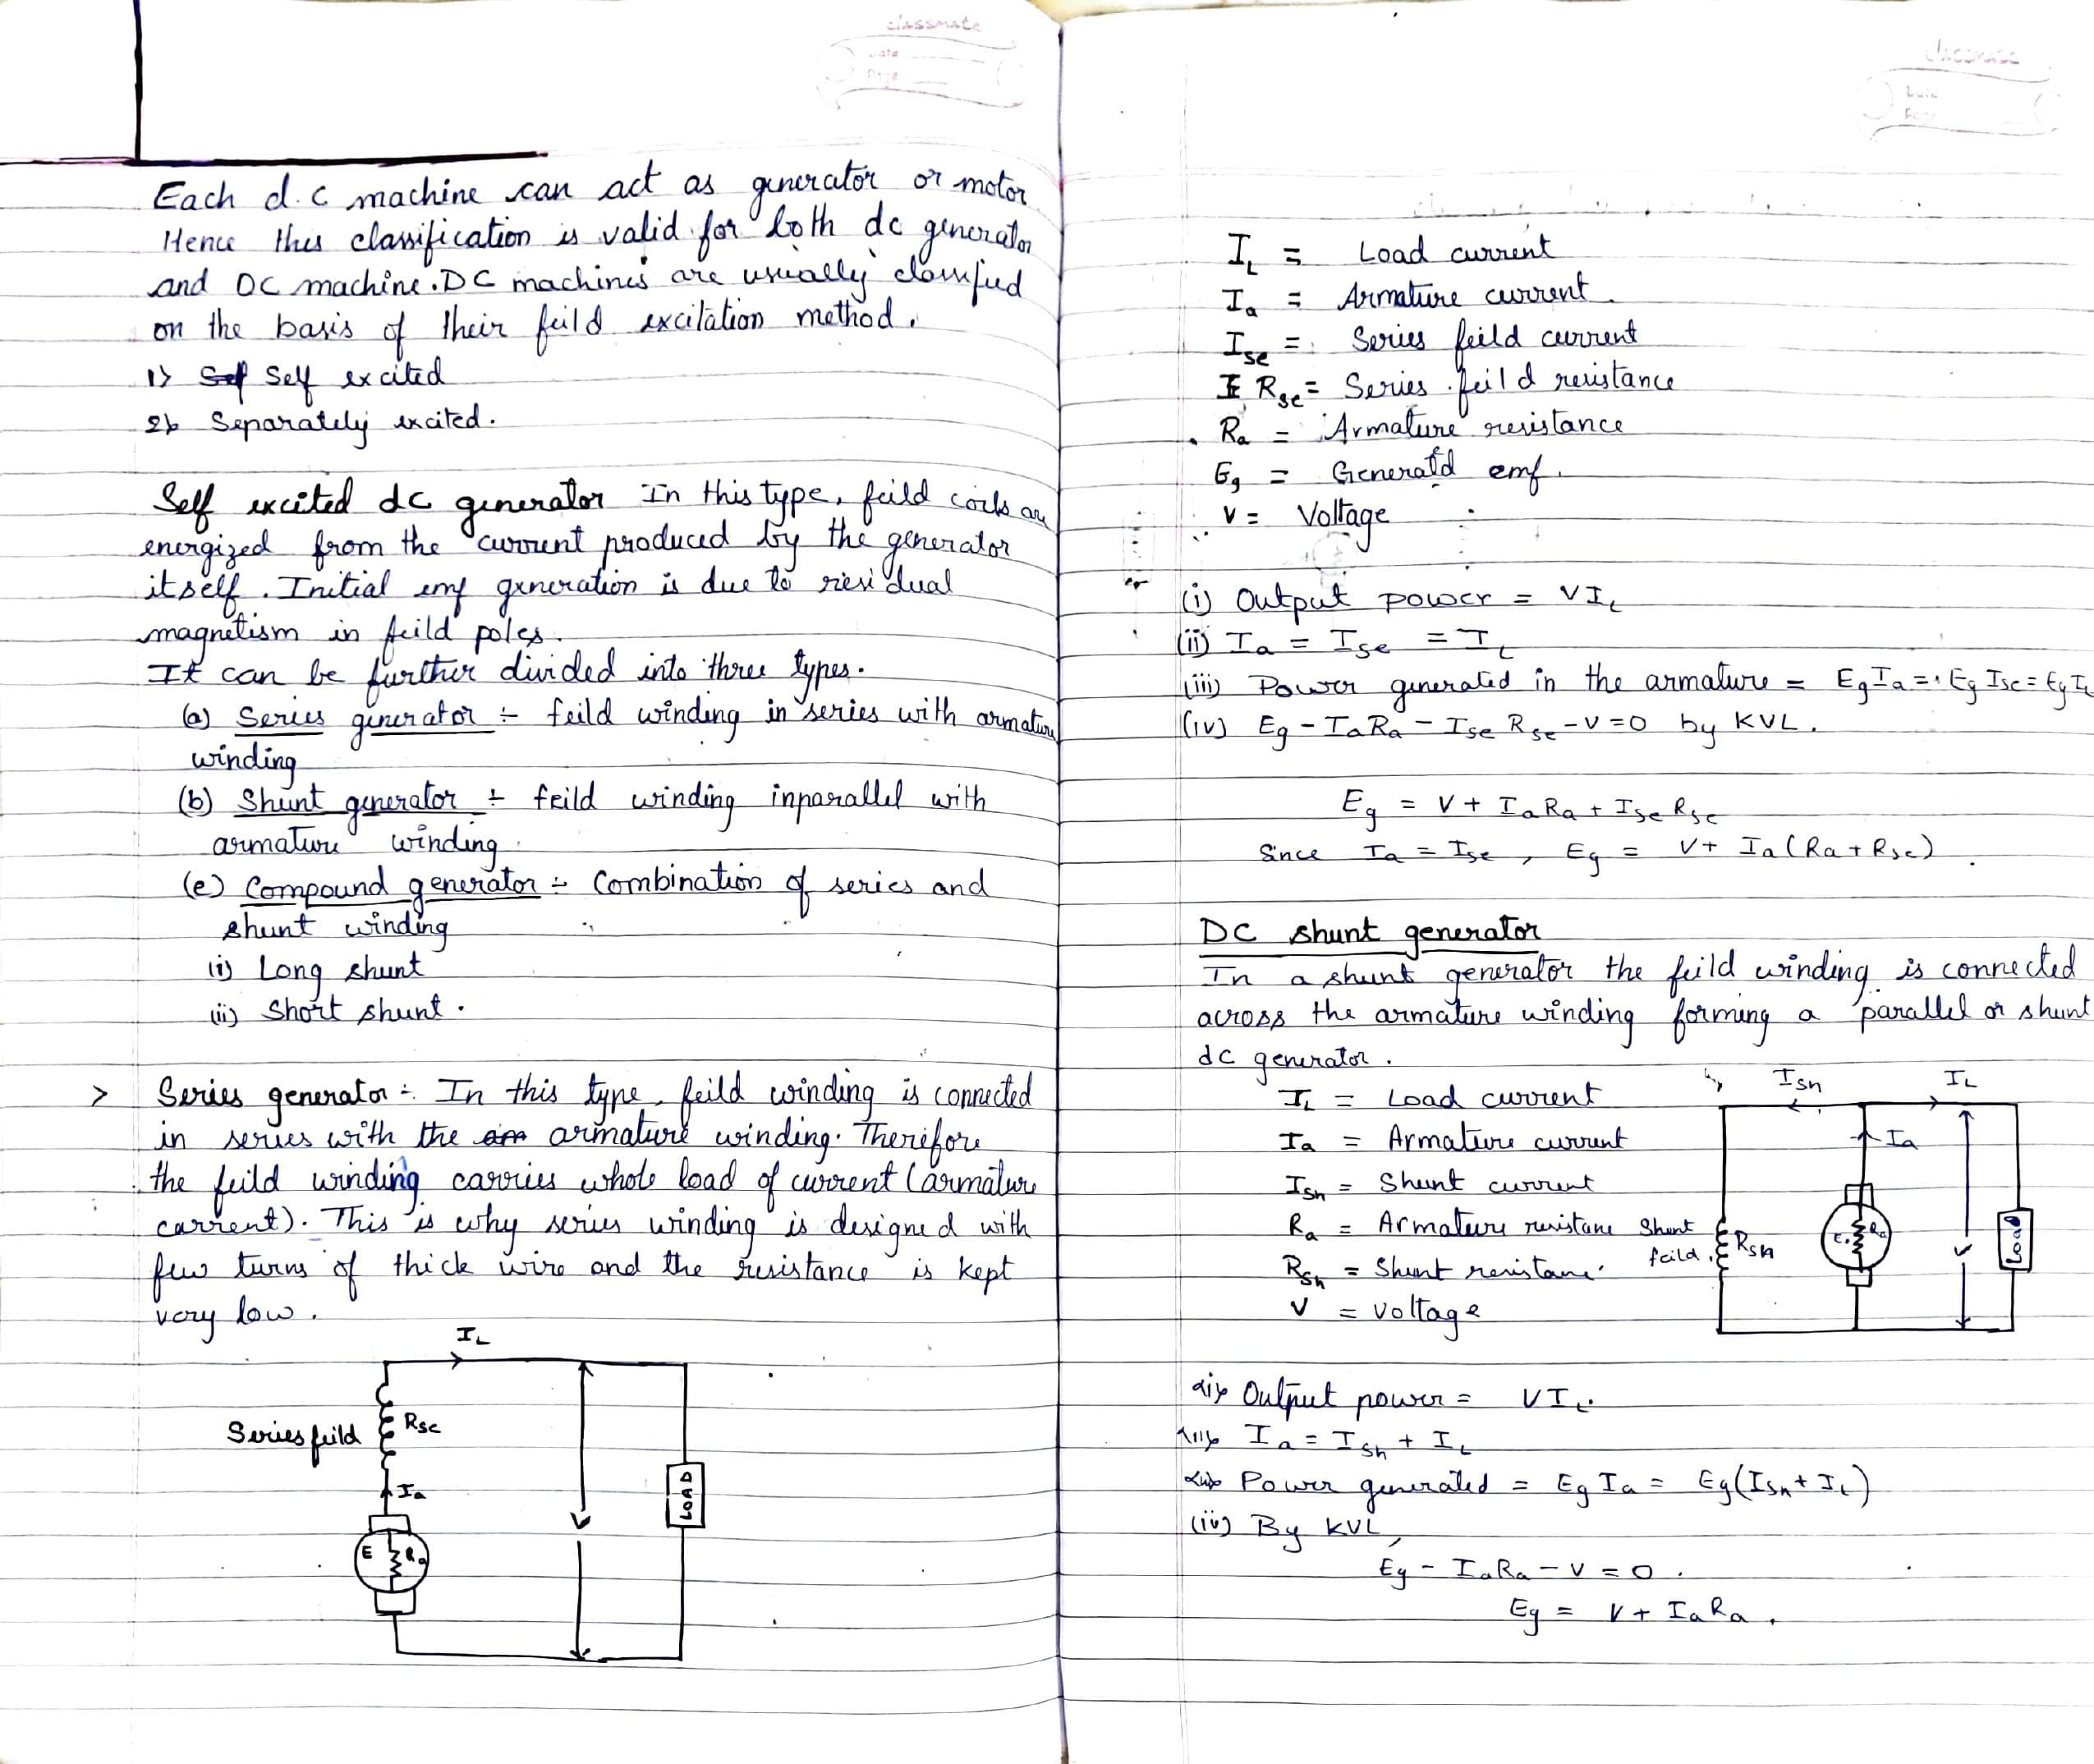 classmate
Date
Page
Each d.c machine can act as generator or motor
Hence this classification is valid for both dc generator
and DC machine. DC machines are usually classified
on the basis of their feild excitation method.
1> Self excited
2> Separately excited.
Self excited dc generator In this type, feild coils are
energized from the current produced by the generator
itself. Initial emf generation is due to residual
magnetism in feild poles.
It can be further divided into three types.
(a) Series generator :- feild winding in series with armature
winding
(b) Shunt generator :- feild winding inparallel with
armature winding
(c) Compound generator :- Combination of series and
shunt winding
(i) Long shunt
(ii) Short shunt.
> Series generator :- In this type, feild winding is connected
in series with the armature winding. Therefore
the feild winding carries whole load of current (armature
current). This is why series winding is designed with
few turns of thick wire and the resistance is kept
very low.
IL
Series feild Rse
Ia
E Ra
V
LOAD
classmate
Date
Page
IL = Load current
Ia = Armature current.
Ise = Series feild current
Rse = Series feild resistance
Ra = Armature resistance
Eg = Generatd emf.
V = Voltage
(i) Output power = VIL
(ii) Ia = Ise = IL
(iii) Power generated in the armature = EgIa = Eg Ise = EgIL
(iv) Eg - IaRa - Ise Rse - V = 0 by KVL.
Eg = V + IaRa + Ise Rse
Since Ia = Ise, Eg = V + Ia(Ra + Rse).
DC shunt generator
In a shunt generator the feild winding is connected
across the armature winding forming a parallel or shunt
dc generator.
IL = Load current
Ia = Armature current
Ish = Shunt current
Ra = Armature resistane
Rsh = Shunt resistane
V = voltage
Ish IL
Ia
Shunt
feild. Rsh
E. Ra
V
Load
<i> Output power = VIL.
<ii> Ia = Ish + IL
<iii> Power generated = Eg Ia = Eg(Ish + IL)
(iv) By KVL,
Eg - IaRa - V = 0.
Eg = V + IaRa.